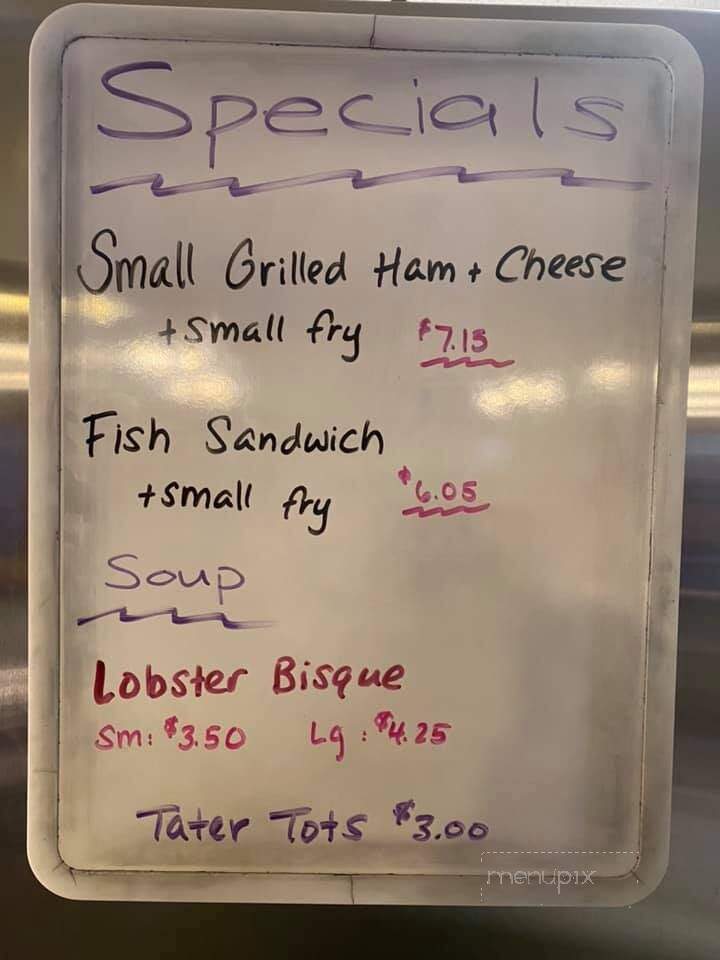 Specials
Small Grilled Ham + Cheese
+ small fry $7.15
Fish Sandwich
+ small fry $6.05
Soup
Lobster Bisque
Sm: $3.50 Lg: $4.25
Tater Tots $3.00
menupix